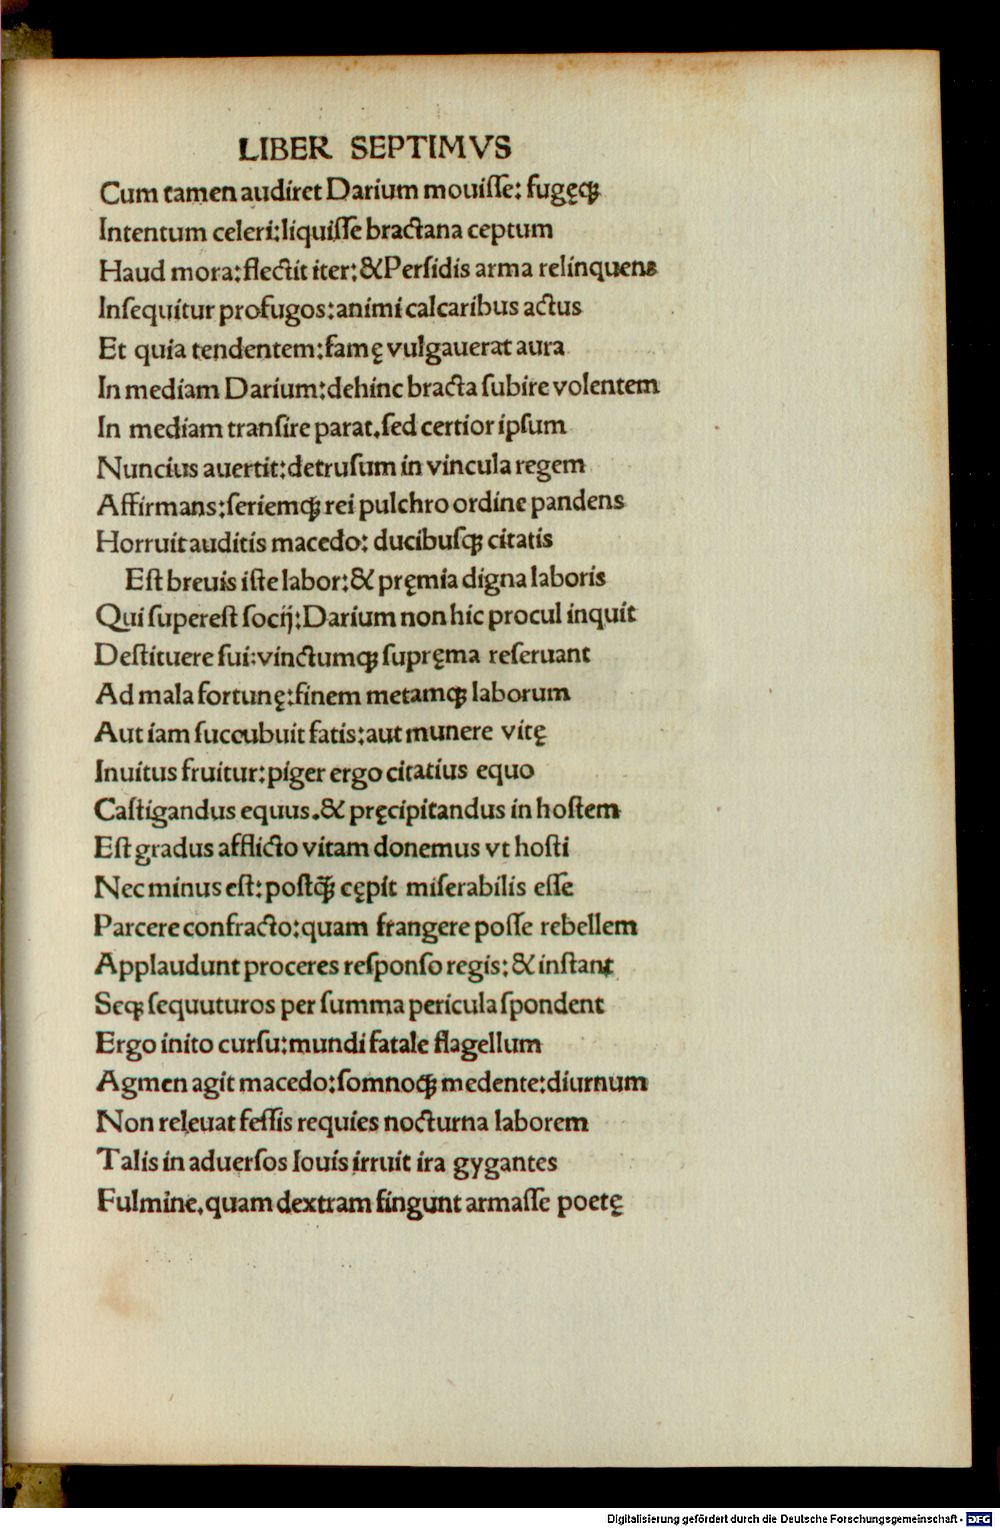 LIBER SEPTIMVS
Cum tamen audiret Darium mouiſſe: fugęqꝫ
Intentum celeri:liquiſſe bractana ceptum
Haud mora:flectit iter:&Perſidis arma relinquens
Inſequitur profugos:animi calcaribus actus
Et quia tendentem:famę vulgauerat aura
In mediam Darium:dehinc bracta ſubire volentem
In mediam tranſire parat.ſed certior ipſum
Nuncius auertit:detruſum in vincula regem
Affirmans:ſeriemqꝫ rei pulchro ordine pandens
Horruit auditis macedo: ducibuſqꝫ citatis
Eſt breuis iſte labor:& pręmia digna laboris
Qui ſupereſt ſocij:Darium non hic procul inquit
Deſtituere ſui:vinctumqꝫ ſupręma reſeruant
Ad mala fortunę:finem metamqꝫ laborum
Aut iam ſuccubuit fatis:aut munere vitę
Inuitus fruitur:piger ergo citatius equo
Caſtigandus equus.& pręcipitandus in hoſtem
Eſt gradus afflicto vitam donemus vt hoſti
Nec minus eſt:poſtq̃ꝫ cępit miſerabilis eſſe
Parcere confracto:quam frangere poſſe rebellem
Applaudunt proceres reſponſo regis:& inſtant
Seqꝫ ſequuturos per ſumma pericula ſpondent
Ergo inito curſu:mundi fatale flagellum
Agmen agit macedo:ſomnoqꝫ medente:diurnum
Non releuat feſſis requies nocturna laborem
Talis in aduerſos Iouis irruit ira gygantes
Fulmine.quam dextram fingunt armaſſe poetę
Digitalisierung gefördert durch die Deutsche Forschungsgemeinschaft - DFG